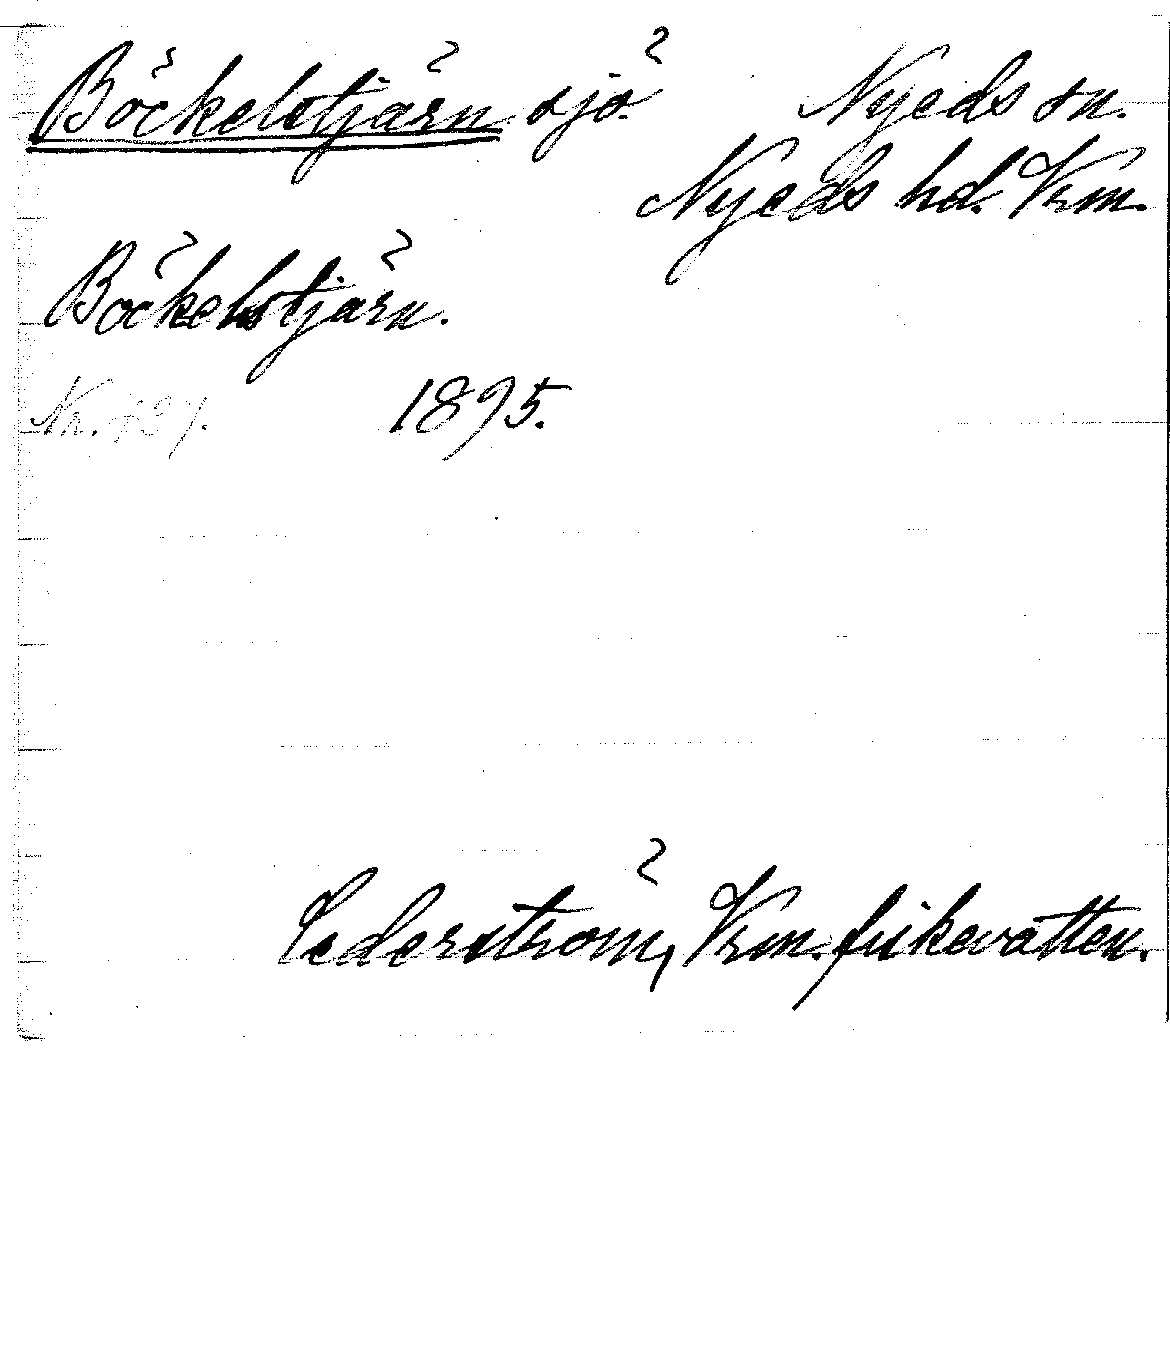 Böckelstjärn sjö Nyeds sn.
Nyeds hd. Vrm.
Böckelstjärn.
Nr. 1895.
Cederström, Vrm. fiskevatten.